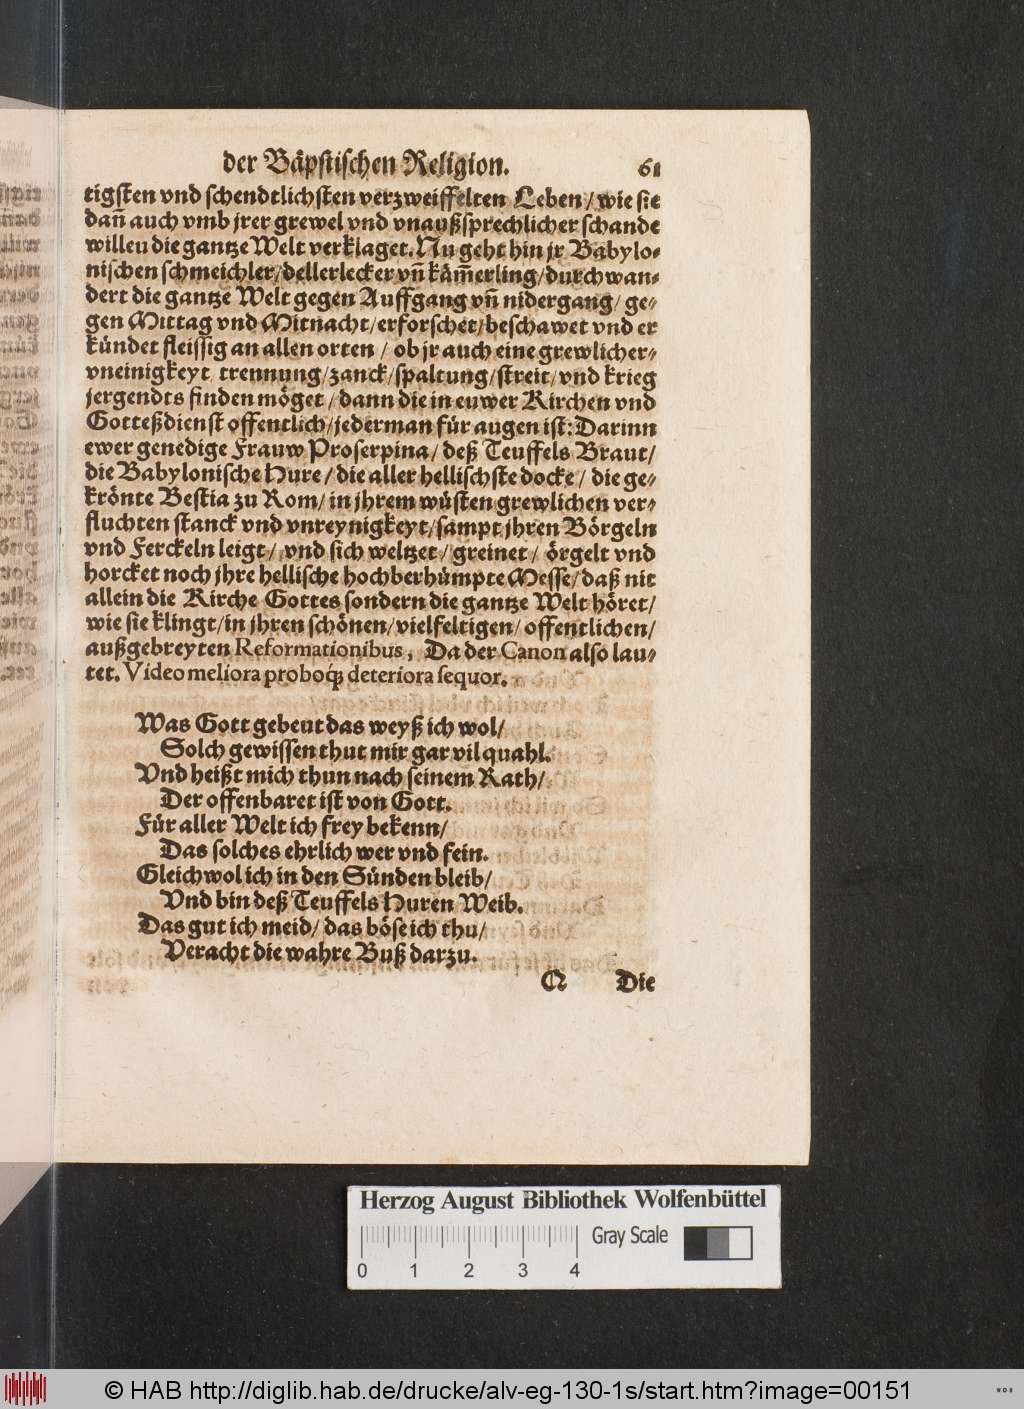 der Bäpstischen Religion. 61
tigsten vnd schendtlichsten verzweiffelten Leben / wie sie
dañ auch vmb jrer grewel vnd vnaußsprechlicher schande
willeu die gantze Welt verklaget. Nu geht hin jr Babylo-
nischen schmeichler/dellerlecker vñ käm̃erling/durchwan-
dert die gantze Welt gegen Auffgang vñ nidergang/ ge-
gen Mittag vnd Mitnacht/erforschet/beschawet vnd er
kündet fleissig an allen orten / ob jr auch eine grewlicher-
vneinigkeyt trennung/zanck/spaltung/streit/vnd krieg
jergendts finden möget/dann die in euwer Kirchen vnd
Gotteßdienst offentlich/jederman für augen ist: Darinn
ewer genedige Frauw Proserpina/ deß Teuffels Braut/
die Babylonische Hure / die aller hellischste docke / die ge-
krönte Bestia zu Rom/ in jhrem wüsten grewlichen ver-
fluchten stanck vnd vnreynigkeyt/sampt jhren Börgeln
vnd Ferckeln leigt/ vnd sich weltzet/greinet/ örgelt vnd
horcket noch jhre hellische hochberhümpte Messe/daß nit
allein die Kirche Gottes sondern die gantze Welt höret/
wie sie klingt/in jhren schönen/vielfeltigen/ offentlichen/
außgebreyten Reformationibus, Da der Canon also lau-
tet. Video meliora proboq́; deteriora sequor.
Was Gott gebeut das weyß ich wol/
Solch gewissen thut mir gar vil quahl.
Vnd heißt mich thun nach seinem Rath/
Der offenbaret ist von Gott.
Für aller Welt ich frey bekenn/
Das solches ehrlich wer vnd fein.
Gleichwol ich in den Sünden bleib/
Vnd bin deß Teuffels Huren Weib.
Das gut ich meid/ das böse ich thu/
Veracht die wahre Buß darzu.
Q Die
Herzog August Bibliothek Wolfenbüttel
Gray Scale
0 1 2 3 4
© HAB http://diglib.hab.de/drucke/alv-eg-130-1s/start.htm?image=00151